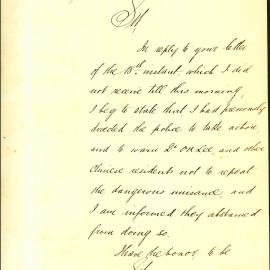 Sir
In reply to your letter
of the 13th instant, which I did
not receive till this morning,
I beg to state that I had previously
directed the police to take action,
and to warn Dr On Lee, and other
Chinese residents not to repeat
the dangerous nuisance, and
I am informed they abstained
from doing so.
I have the honor to be
Sir